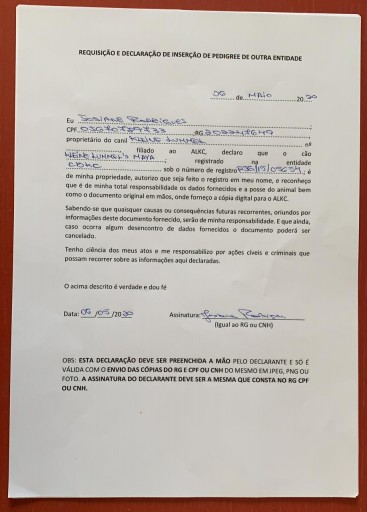 REQUISIÇÃO E DECLARAÇÃO DE INSERÇÃO DE PEDIGREE DE OUTRA ENTIDADE
06 de MAIO 2020
Eu JOSIANE RODRIGUES
CPF RG
proprietário do canil KLEINE LUMMEL nº
filiado ao ALKC, declaro que o cão
KLEINE LUMMEL'S MAYA registrado na entidade
CBKC sob o número de registro é
de minha propriedade, autorizo que seja feito o registro em meu nome, e reconheço
que é de minha total responsabilidade os dados fornecidos e a posse do animal bem
como o documento original em mãos, onde forneço a cópia digital para o ALKC.
Sabendo-se que quaisquer causas ou consequências futuras recorrentes, oriundos por
informações deste documento fornecido, serão de minha responsabilidade. E que ainda,
caso ocorra algum desencontro de dados fornecidos o documento poderá ser
cancelado.
Tenho ciência dos meus atos e me responsabilizo por ações cíveis e criminais que
possam recorrer sobre as informações aqui declaradas.
O acima descrito é verdade e dou fé
Data: 06/05/2020 Assinatura:
(Igual ao RG ou CNH)
OBS: ESTA DECLARAÇÃO DEVE SER PREENCHIDA A MÃO PELO DECLARANTE E SÓ É
VÁLIDA COM O ENVIO DAS CÓPIAS DO RG E CPF OU CNH DO MESMO EM JPEG, PNG OU
FOTO. A ASSINATURA DO DECLARANTE DEVE SER A MESMA QUE CONSTA NO RG CPF
OU CNH.